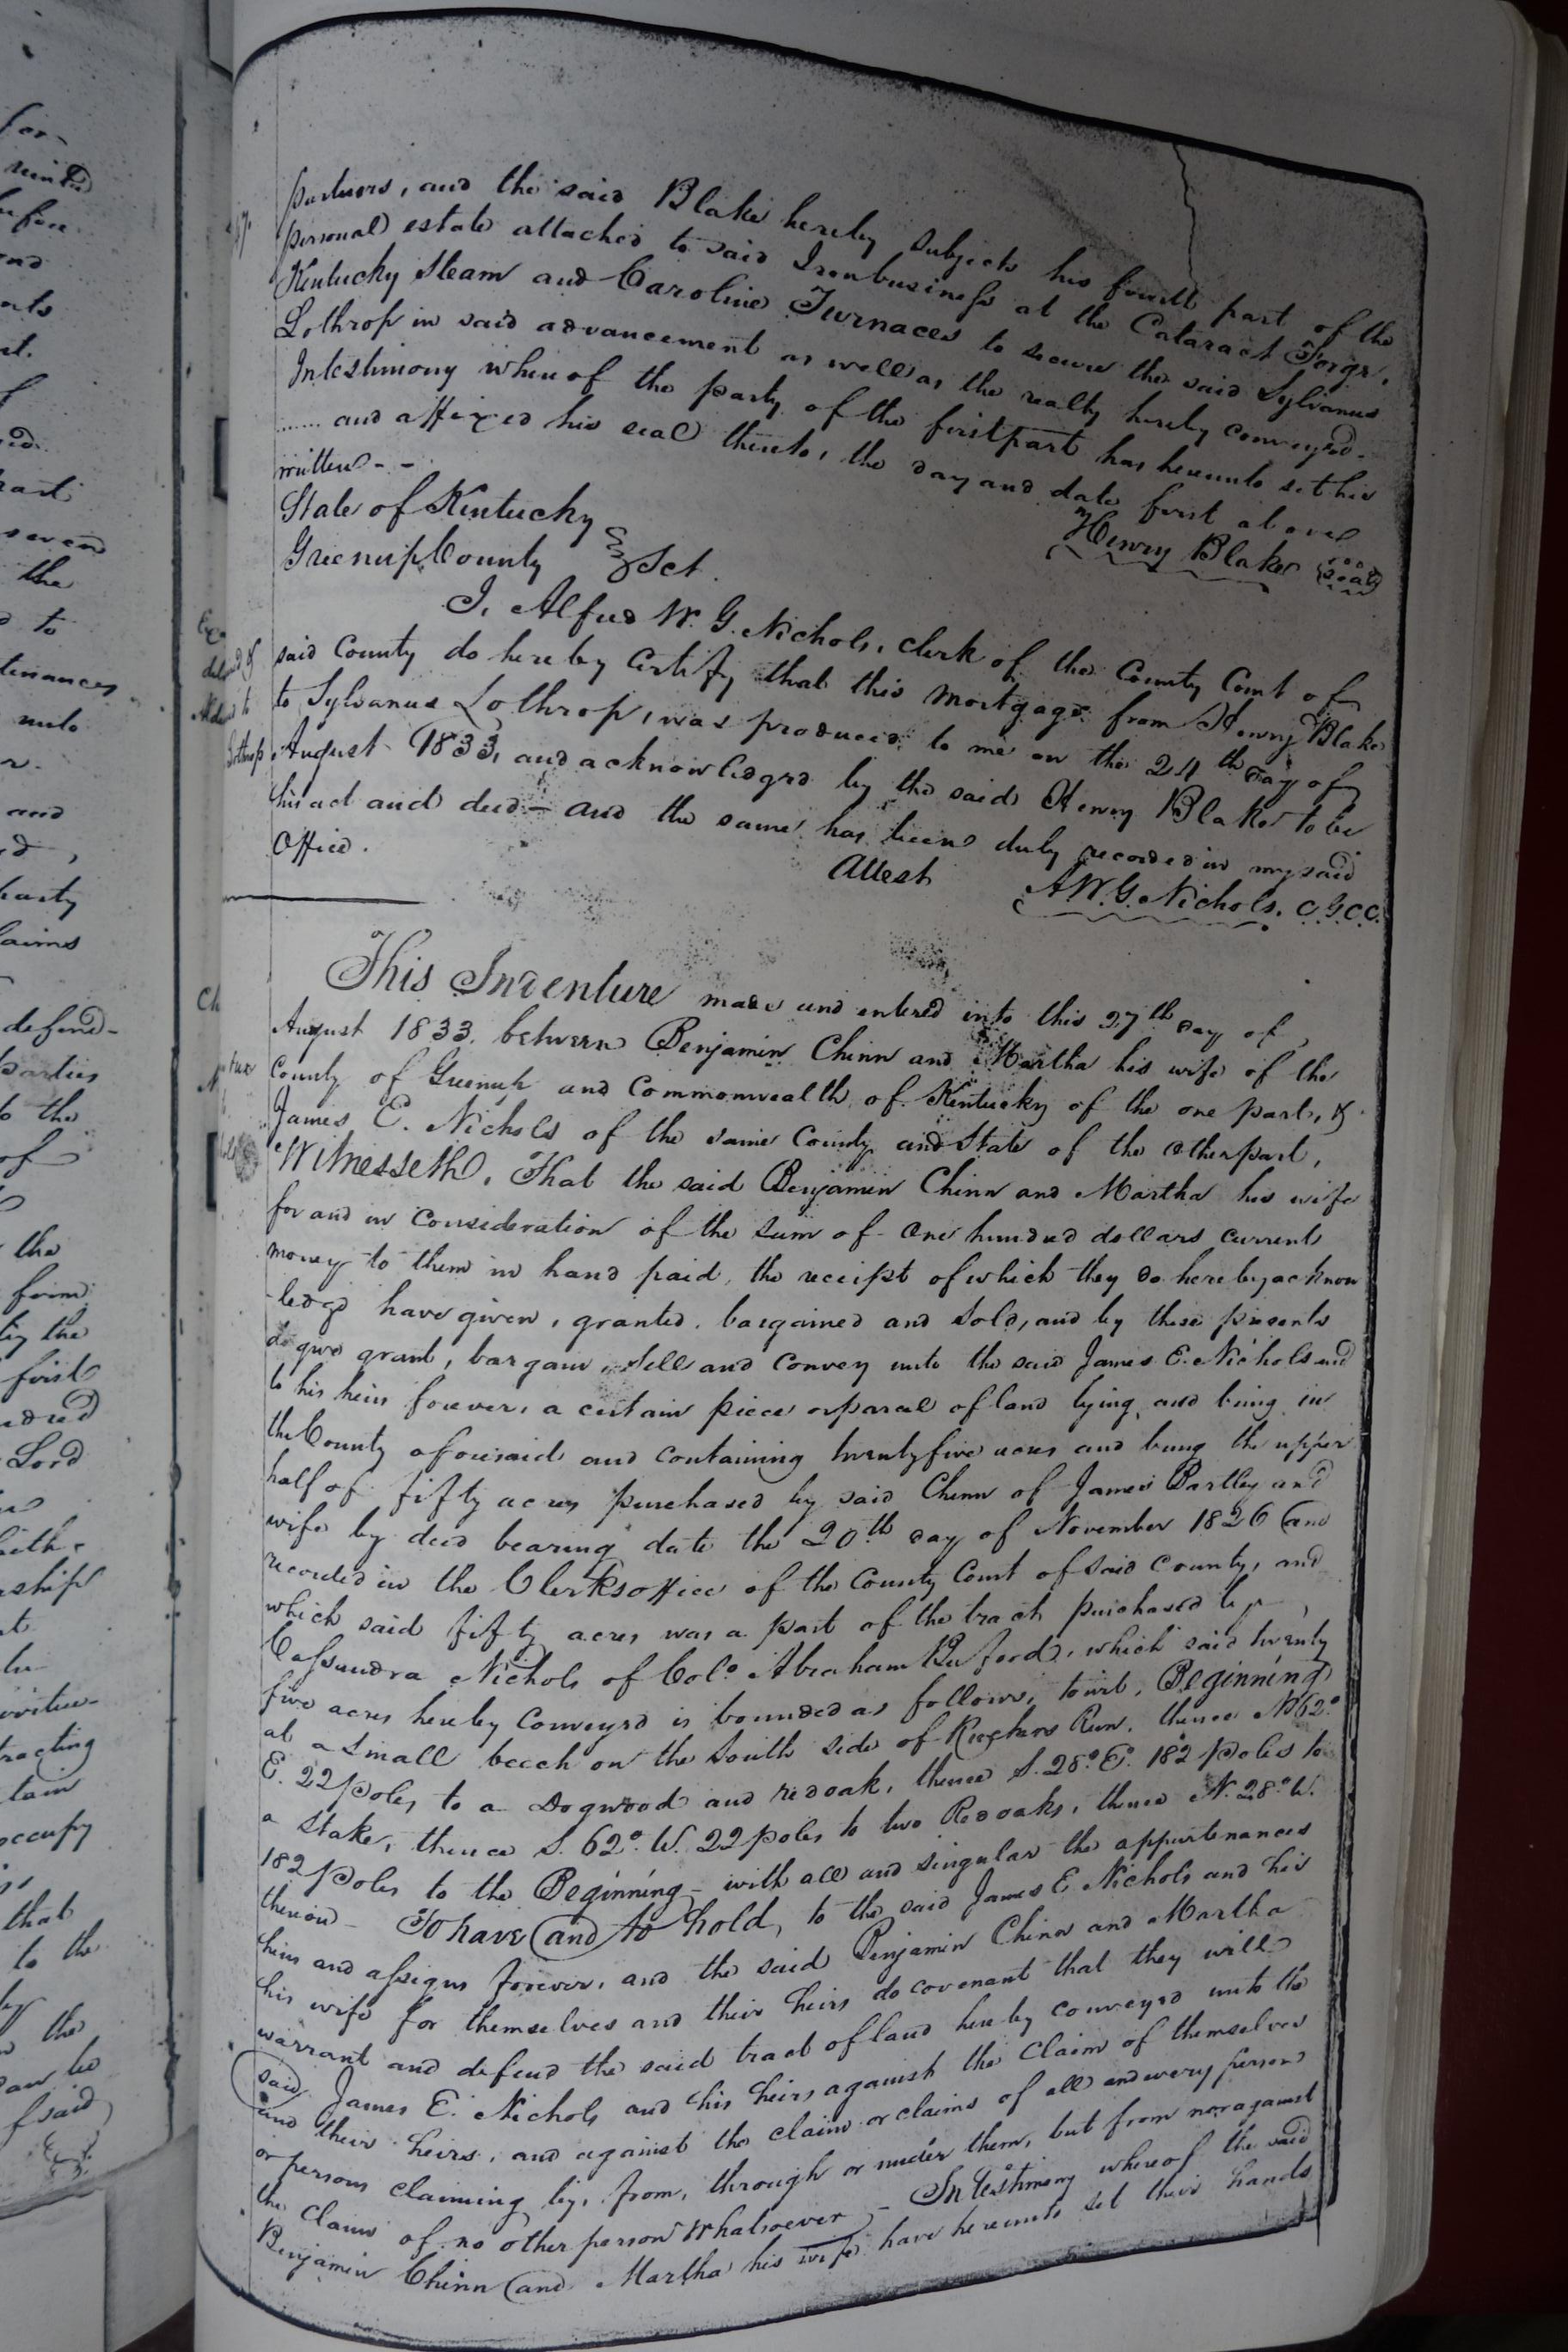 partners, and the said Blake hereby subjects his fourth part of the
personal estate attached to said Iron business at the Cataract Forge,
Kentucky Steam and Caroline Furnaces to secure the said Sylvanus
Lothrop in said advancement as well as the realty hereby conveyed.
In testimony whereof the party of the first part has hereunto set his
...... and affixed his seal thereto, the day and date first above
written - -
Henry Blake seal
State of Kentucky
Greenup County Sct.
I, Alfred W. G. Nichols, Clerk of the County Court of
said County do hereby Certify that this mortgage from Henry Blake
to Sylvanus Lothrop, was produced to me on the 24th day of
August 1833, and acknowledged by the said Henry Blake to be
his act and deed - and the same has been duly recorded in my said
office.
Attest A. W. G. Nichols. C.G.C.C.
This Indenture made and entered into this 27th day of
August 1833. between Benjamin Chinn and Martha his wife of the
County of Greenup and Commonwealth of Kentucky of the one part, &
James E. Nichols of the same County and State of the other part,
Witnesseth, That the said Benjamin Chinn and Martha his wife
for and in consideration of the sum of One hundred dollars current
money to them in hand paid, the receipt of which they do hereby acknow
-ledge have given, granted, bargained and sold, and by these presents
do give grant, bargain, sell and convey unto the said James E. Nichols and
to his heirs forever, a certain piece or parcel of land lying and being in
the County aforesaid and containing twenty five acres and being the upper
half of fifty acres purchased by said Chinn of James Bartley and
wife by deed bearing date the 20th day of November 1826 and
recorded in the Clerks office of the County Court of said County, and
which said fifty acres was a part of the tract purchased by
Cassandra Nichols of Colo. Abraham Buford, which said twenty
five acres hereby conveyed is bounded as follows, towit, Beginning
at a small beech on the South side of Run, thence N 62°
E. 22 poles to a Dogwood and red oak, thence S. 28° E. 182 poles to
a Stake, thence S. 62° W. 22 poles to two Red oaks, thence N. 28° W.
182 poles to the Beginning - with all and singular the appurtenances
thereon - To have and to hold, to the said James E. Nichols and his
heirs and assigns forever, and the said Benjamin Chinn and Martha
his wife for themselves and their heirs do covenant that they will
warrant and defend the said tract of land hereby conveyed unto the
said James E. Nichols and his heirs against the claim of themselves
and their heirs, and against the claim or claims of all and every person
or persons claiming by, from, through or under them, but from nor against
the claim of no other person whatsoever - In testimony whereof the said
Benjamin Chinn and Martha his wife have hereunto set their hands